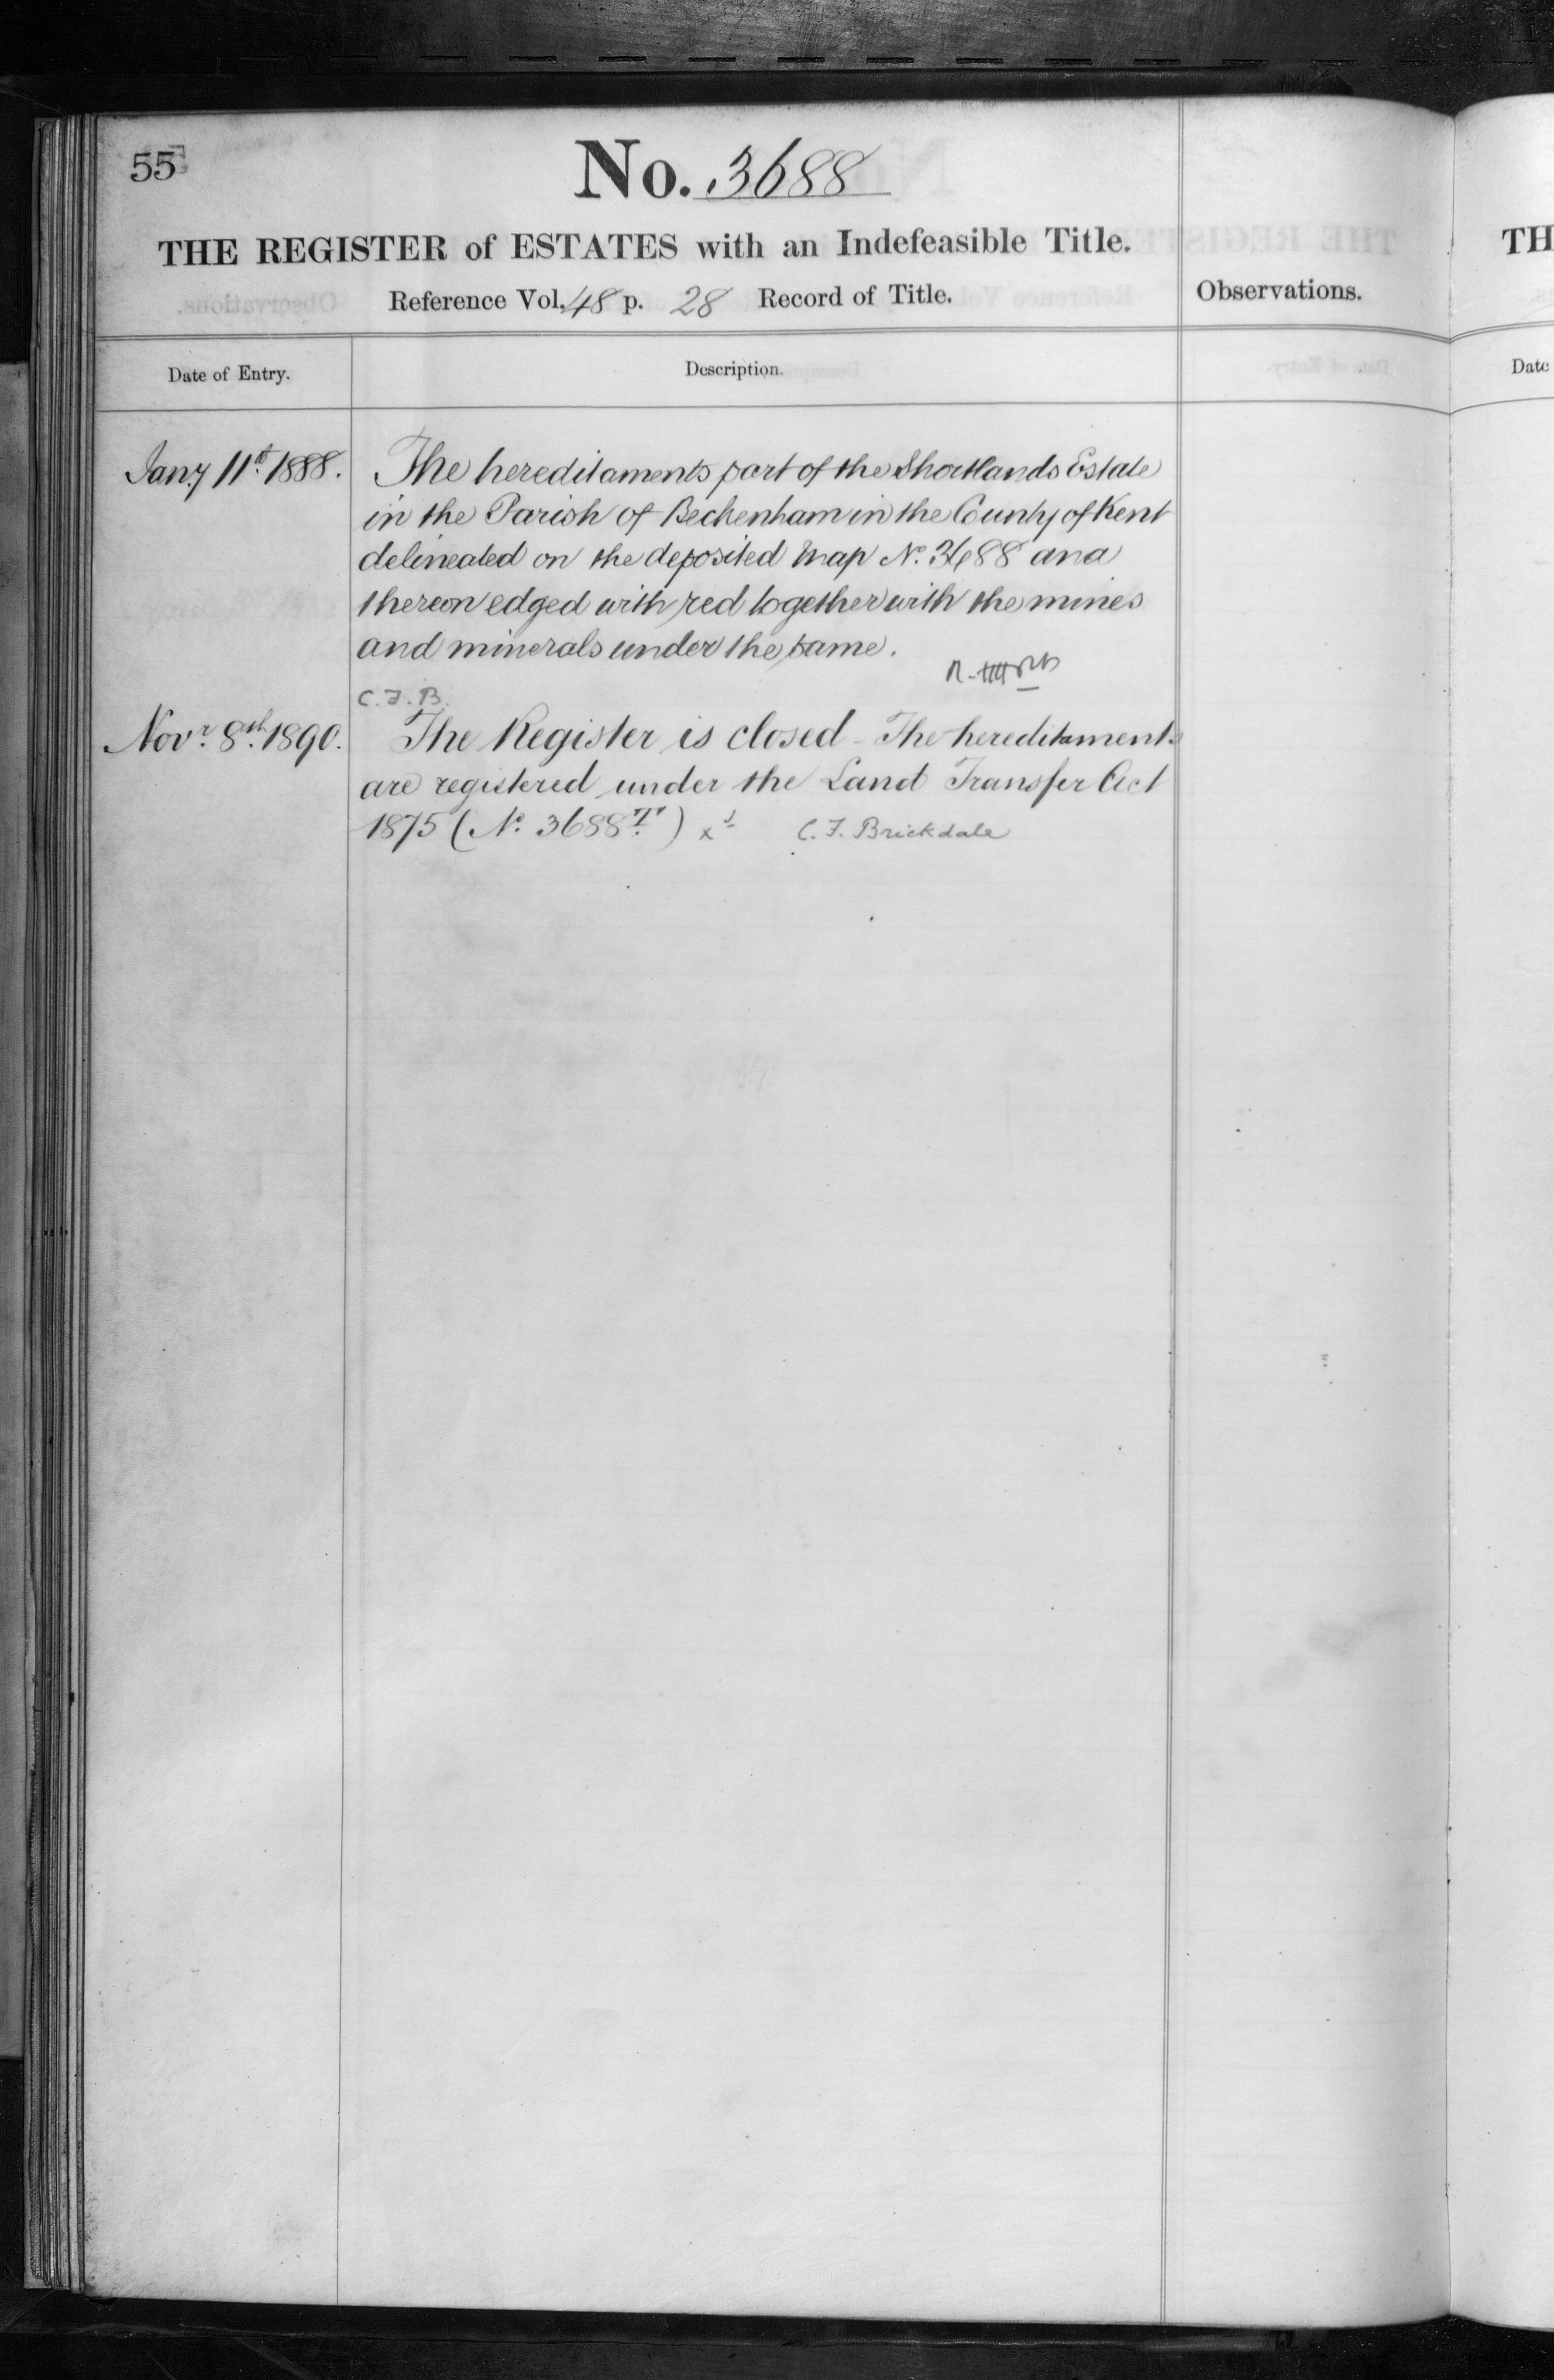 55
No. 3688
THE REGISTER of ESTATES with an Indefeasible Title.
Reference Vol. 48 p. 28 Record of Title.
Observations.
Date of Entry.
Description.
Jany 11th 1888.
The hereditaments part of the Shortlands Estate
in the Parish of Beckenham in the County of Kent
delineated on the deposited Map No. 3688 and
thereon edged with red together with the mines
and minerals under the same.
C. F. B.
Novr. 8th. 1890.
The Register is closed - The hereditaments
are registered under the Land Transfer Act
1875 (No. 3688T.) x
C. F. Brickdale
TH
Date